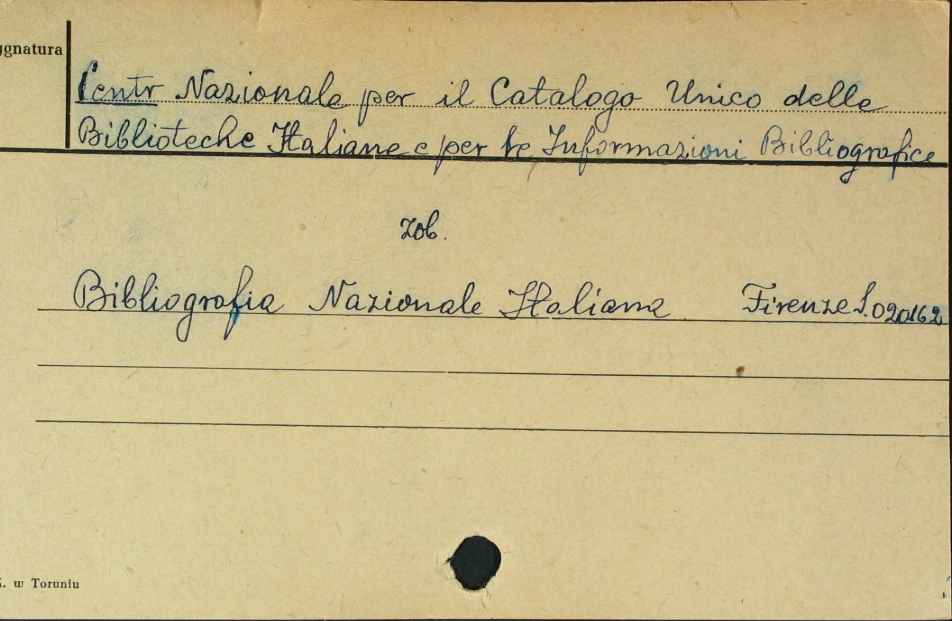 ygnatura
Centr Nazionale per il Catalogo Unico delle
Biblioteche Italiane e per le Informazioni Bibliografice
zob.
Bibliografia Nazionale Italiana Firenze S.020162
. w Toruniu